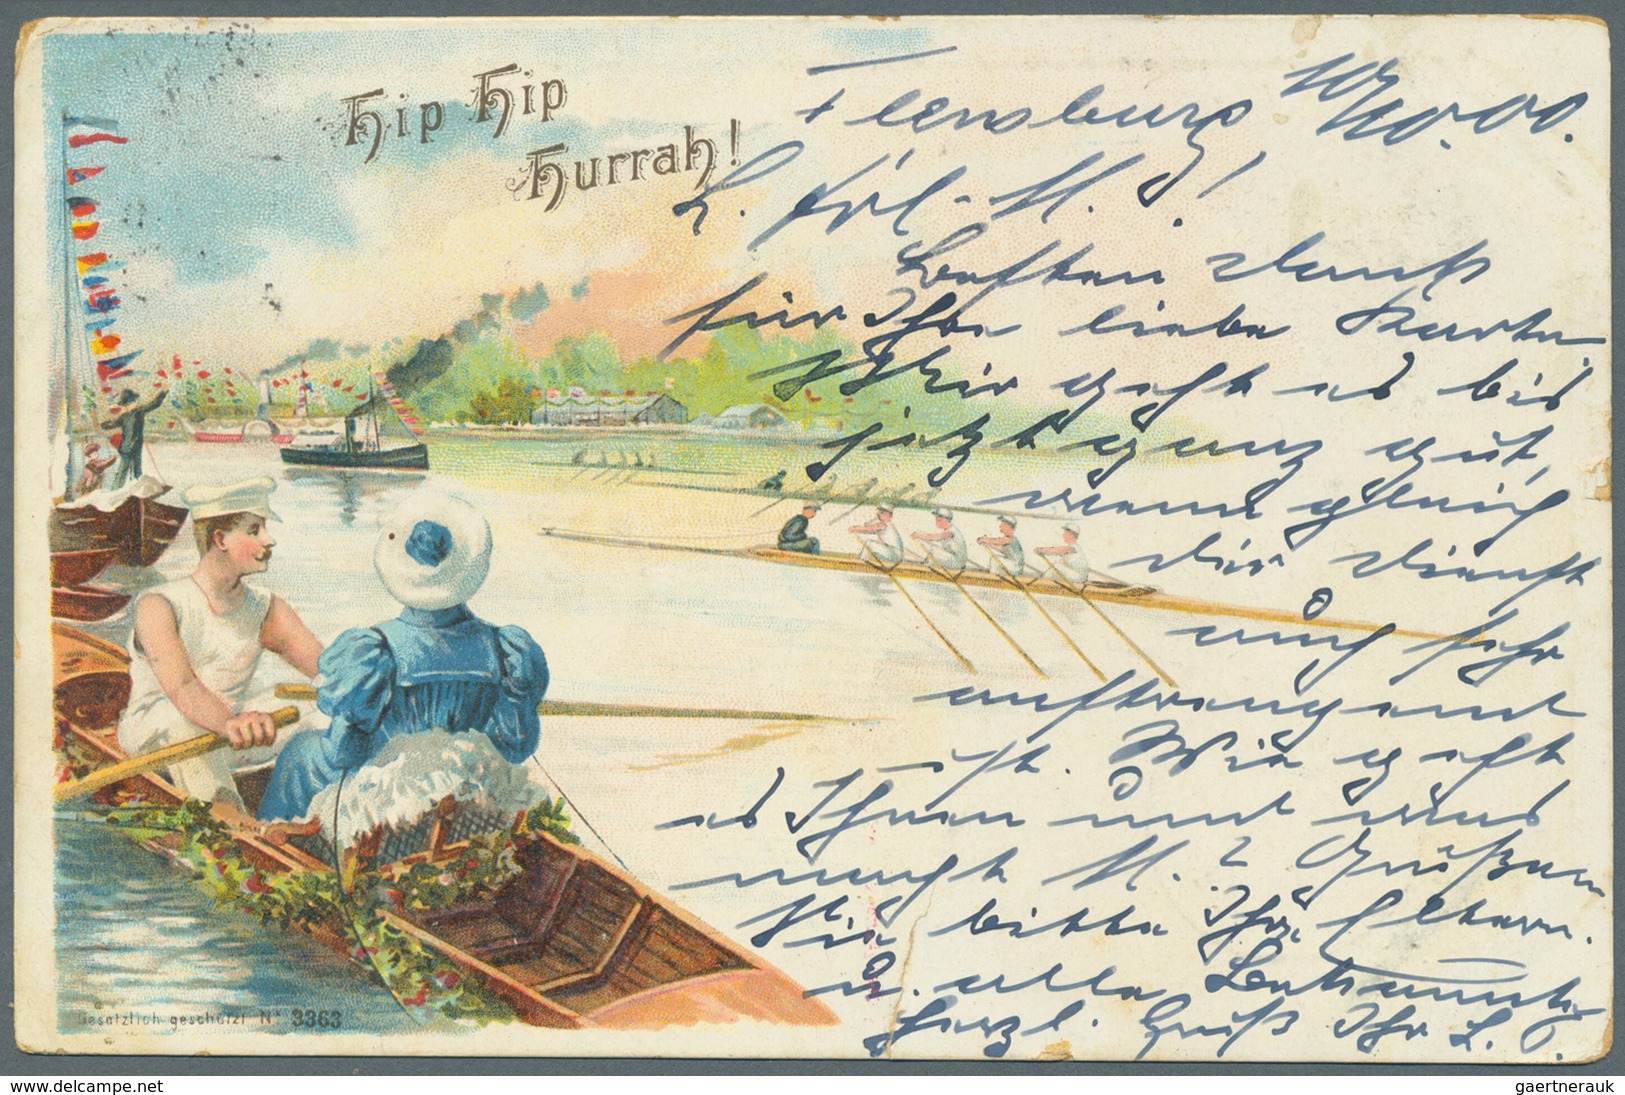 Hip Hip
Hurrah!
Flensburg 10/10.00.
L. Frl. M.!
Besten Dank
für Ihre liebe Karte.
Mir geht es bis
jetzt ganz gut,
wenn gleich
der Dienst
auch sehr
anstrengend
ist. Wie geht
es Ihnen und was
macht M.? Grüßen
Sie bitte Ihre Eltern.
u. alle Bekannte
herzl. Gruß Ihr L.
Gesetzlich geschützt No 3363
www.delcampe.net
gaertnerauk